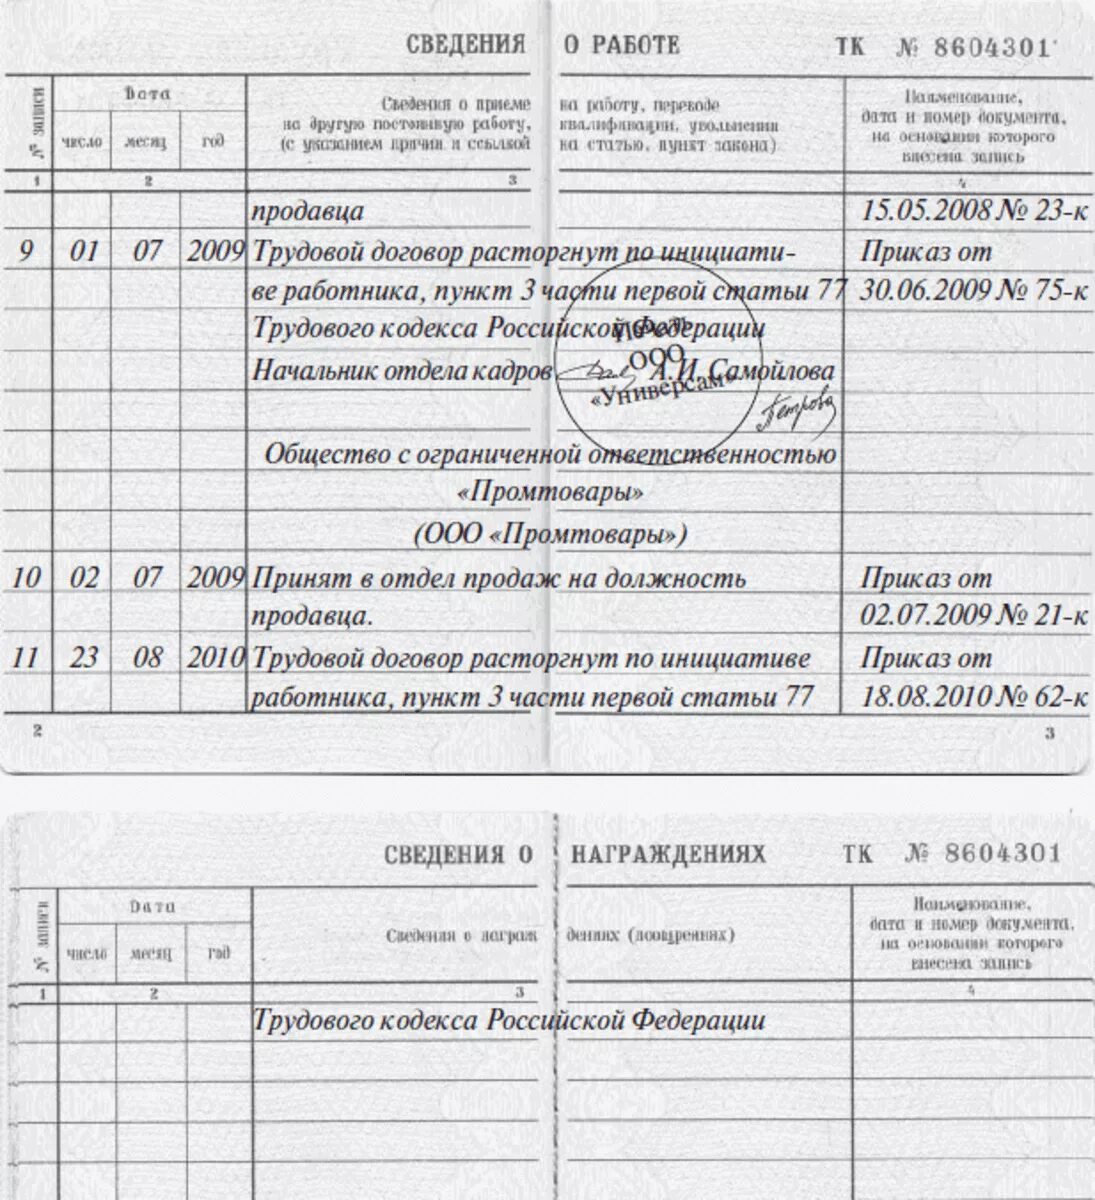 СВЕДЕНИЯ О РАБОТЕ ТК № 8604301
№ записи
Дата
число месяц год
Сведения о приеме на работу, переводе
на другую постоянную работу, квалификации, увольнении
(с указанием причин и ссылкой на статью, пункт закона)
Наименование,
дата и номер документа,
на основании которого
внесена запись
1 2 3 4
продавца 15.05.2008 № 23-к
9 01 07 2009 Трудовой договор расторгнут по инициати- Приказ от
ве работника, пункт 3 части первой статьи 77 30.06.2009 № 75-к
Трудового кодекса Российской Федерации
Печать
ООО
«Универсам»
Начальник отдела кадров А.И. Самойлова
Петрова
Общество с ограниченной ответственностью
«Промтовары»
(ООО «Промтовары»)
10 02 07 2009 Принят в отдел продаж на должность Приказ от
продавца. 02.07.2009 № 21-к
11 23 08 2010 Трудовой договор расторгнут по инициативе Приказ от
работника, пункт 3 части первой статьи 77 18.08.2010 № 62-к
2 3
СВЕДЕНИЯ О НАГРАЖДЕНИЯХ ТК № 8604301
№ записи
Дата
число месяц год
Сведения о награждениях (поощрениях)
Наименование,
дата и номер документа,
на основании которого
внесена запись
1 2 3 4
Трудового кодекса Российской Федерации